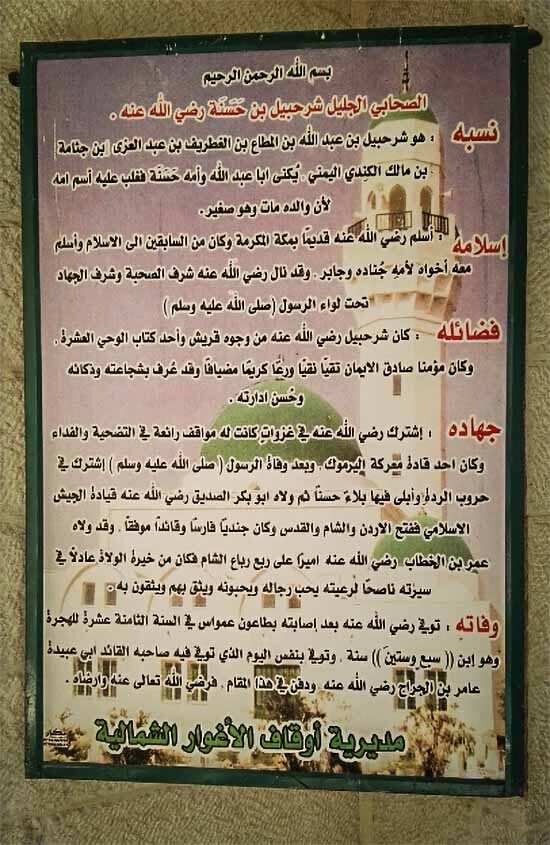 بسم الله الرحمن الرحيم
الصحابي الجليل شرحبيل بن حَسَنَة رضي الله عنه .
نسبه : هو شرحبيل بن عبد الله بن المطاع بن الغطريف بن عبد العزى إبن جثامة
بن مالك الكِندي اليمني . يُكنى ابا عبد الله وأمه حَسَنَة فغلب عليه أسم امه
لأن والده مات وهو صغير .
إسلامه : أسلم رضي الله عنه قديمًا بمكة المكرمة وكان من السابقين الى الاسلام وأسلم
معه أخواه لأمه جُناده وجابر . وقد نال رضي الله عنه شرف الصحبة وشرف الجهاد
تحت لواء الرسول (صلى الله عليه وسلم )
فضائله : كان شرحبيل رضي الله عنه من وجوه قريش وأحد كتاب الوحي العشرة .
وكان مؤمنا صادق الايمان تقيًا نقيًا ورعًا كريمًا مضيافًا وقد عُرف بشجاعته وذكائه
وحُسن ادارته .
جهاده : إشترك رضي الله عنه في غزواتٍ كانت له مواقف رائعة في التضحية والفداء
وكان احد قادة معركة اليرموك . وبعد وفاة الرسول ( صلى الله عليه وسلم ) إشترك في
حروب الردة وأبلى فيها بلاءً حسنًا ثم ولاه ابو بكر الصديق رضي الله عنه قيادة الجيش
الاسلامي ففتح الاردن والشام والقدس وكان جنديًا فارسًا وقائدًا موفقًا . وقد ولاه
عمر بن الخطاب رضي الله عنه اميرًا على ربع رباع الشام فكان من خيرة الولاة عادلًا في
سيرته ناصحًا لرعيته يحب رجاله ويحبونه ويثق بهم ويثقون به .
وفاته : توفي رضي الله عنه بعد إصابته بطاعون عمواس في السنة الثامنة عشرة للهجرة
وهو إبن (( سبع وستين )) سنة . وتوفي بنفس اليوم الذي توفي فيه صاحبه القائد ابي عبيدة
عامر بن الجراح رضي الله عنه ودفن في هذا المقام . فرضي الله تعالى عنه وارضاه .
مديرية أوقاف الأغوار الشمالية